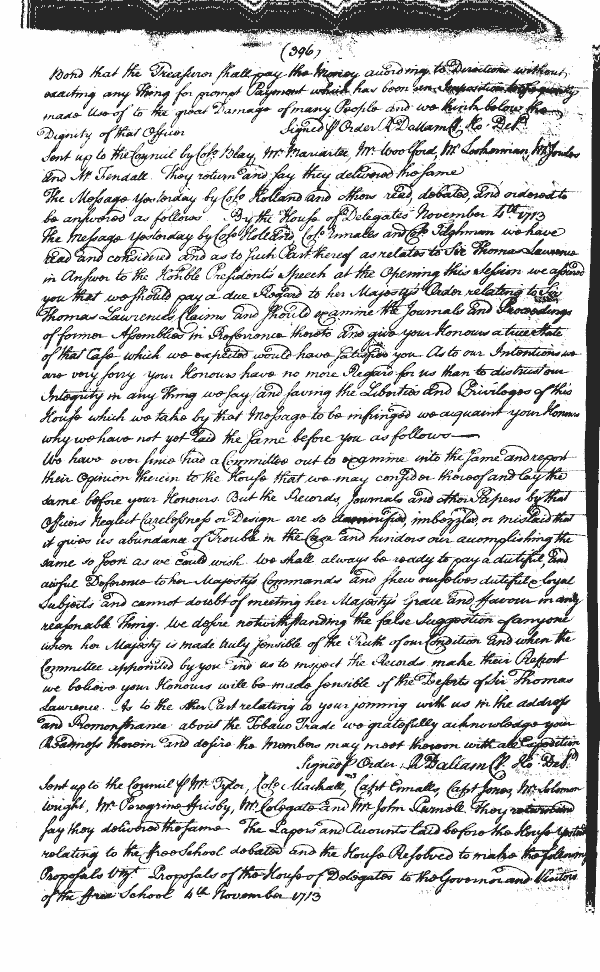 (396)
Bond that the Treasurer shall pay the Money according to Directions without
exacting any thing for prompt Payment which has been an Imposition
made Use of to the great Damage of many People and we think below the
Dignity of that Officer Signed p Order R Dallam Cl. Ho. Del.
Sent up to the Council by Colo Blay, Mr Mariartee, Mr Woolford, Mr Leatherman, Mr Jowles
and Mr Tendall. They return and say they delivered the same
The Message Yesterday by Colo Holland and others read, debated, and ordered to
be answered as follows. By the House of Delegates November 4th 1713
The Message Yesterday by Colo Holland, Colo Ennalls and Colo Tilghman we have
read and considered and as to such Part thereof as relates to Sir Thomas Lawrence
in Answer to the Honble Presidents Speech at the Opening this Session we assured
you that we should pay a due Regard to her Majestys Order relating to Sir
Thomas Lawrences Claims and should examine the Journals and Proceedings
of former Assemblies in Referrence thereto and give your Honours a true State
of that Case which we expected would have satisfied you. As to our Intentions we
are very sorry your Honours have no more Regard for us than to distrust our
Integrity in any thing we say and saving the Liberties and Priviledges of this
House which we take by that Message to be infringed we acquaint your Honours
why we have not yet laid the same before you as follows
We have ever since had a Committee out to examine into the same and report
their Opinion therein to the House that we may consider thereof and lay the
same before your Honours. But the Records, Journals and other Papers by that
Officers Neglect Carelessness or Design are so damnified imbezzled or mislaid that
it gives us abundance of Trouble in the Case and hinders our accomplishing the
same so soon as we could wish. We shall always be ready to pay a dutiful and
awful Deference to her Majestys Commands and shew ourselves dutiful & loyal
Subjects and cannot doubt of meeting her Majestys Grace and ffavour in any
reasonable thing. We desire notwithstanding the false Suggestion of anyone
when her Majesty is made truly sensible of the Truth of our Condition and when the
Committee appointed by you and us to inspect the Records make their Report
we believe your Honours will be made sensible of the Deserts of Sir Thomas
Lawrence. As to the other Part relating to your joining with us in the address
and Remonstrance about the Tobacco Trade we gratefully acknowledge your
Readiness therein and desire the Members may meet thereon with all Expedition
Signed p Order R Dallam Cl. Ho. Del.
Sent up to the Council p Mr Tyler, Colo Mackall, Capt Ennalls, Capt Jones, Mr Solomon
Wright, Mr Peregrine Frisby, Mr Colegate and Mr John Purnell they return and
say they delivered the same. The Papers and Accounts laid before the House Yesterday
relating to the ffree School debated and the House Resolved to make the following
Proposals Vizt. Proposals of the House of Delegates to the Governor and Visitors
of the ffree School 4th November 1713